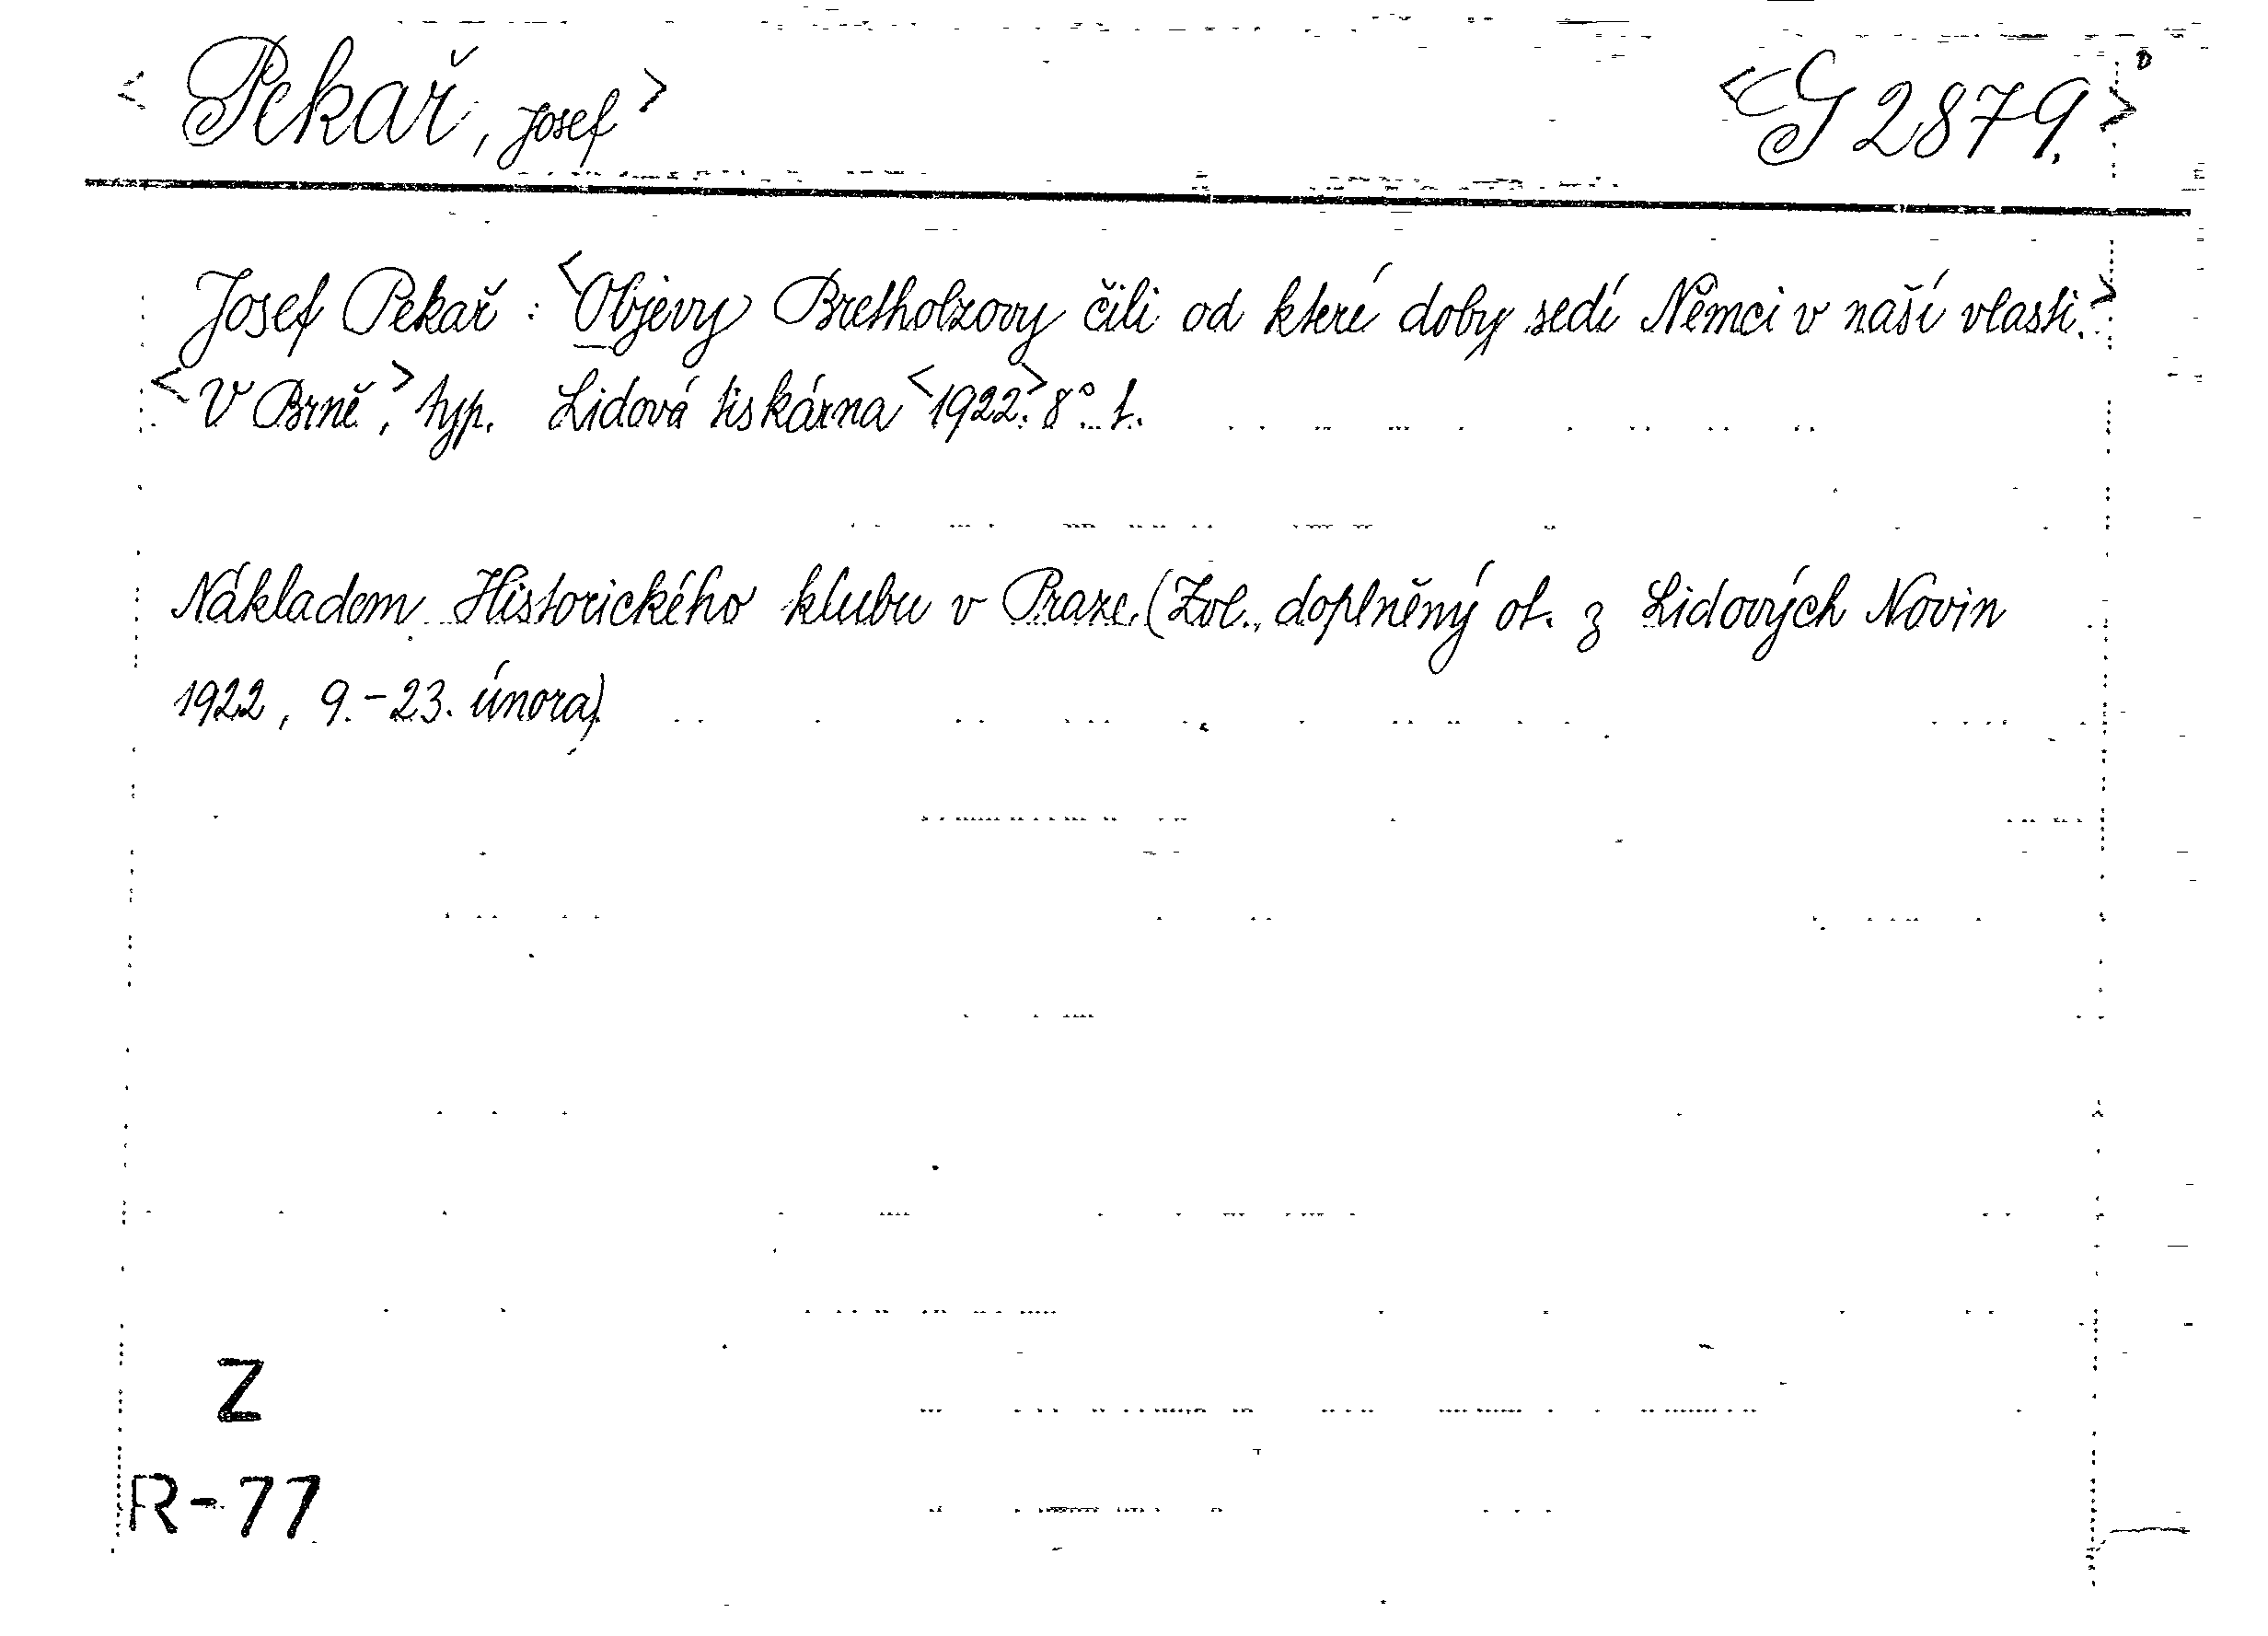 < Pekař, Josef > <G 2879.>
Josef Pekař : <Objevy Bretholzovy čili od které doby sedí Němci v naší vlasti.>
<V Brně,> typ. Lidová tiskárna <1922.> 8° 1.
Nákladem Historického klubu v Praze. (Zvl., doplněný ot. z Lidových Novin
1922, 9.-23. února)
Z
R-77